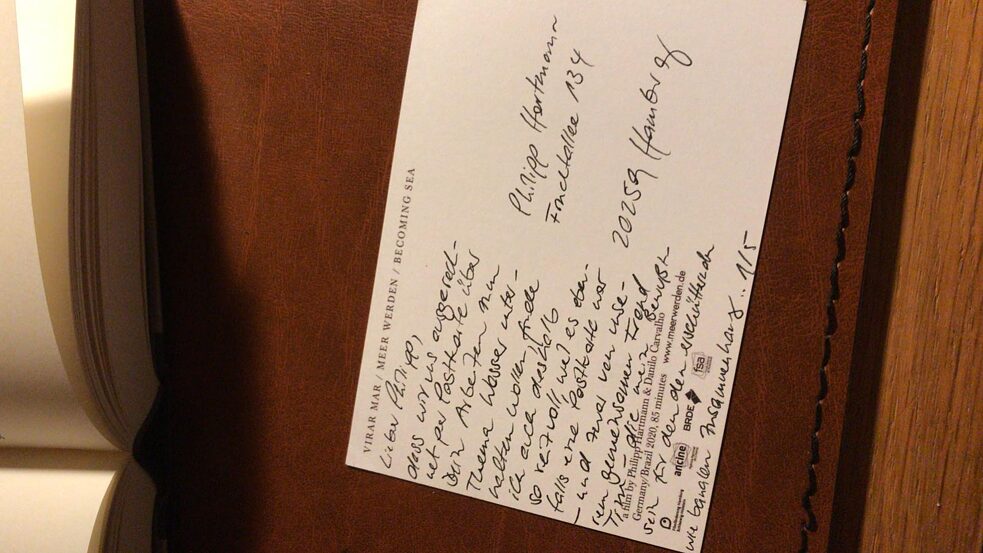 VIRAR MAR / MEER WERDEN / BECOMING SEA
Lieber Philipp,
dass wir uns ausgerech-
net per Postkarte über
Dein Arbeiten zum
Thema Wasser unter-
halten wollen, finde
ich auch deshalb
so reizvoll, weil es eben-
falls eine Postkarte war
– und zwar von unse-
rem gemeinsamen Freund
Timo – die mein Bewusst-
sein für den erschütternd
wie banalen Zusammenhang.. 1/5
Philipp Hartmann
Fruchtallee 134
20259 Hamburg
a film by Philipp Hartmann & Danilo Carvalho
Germany/Brazil 2020, 85 minutes www.meerwerden.de
ancine BRDE fsa